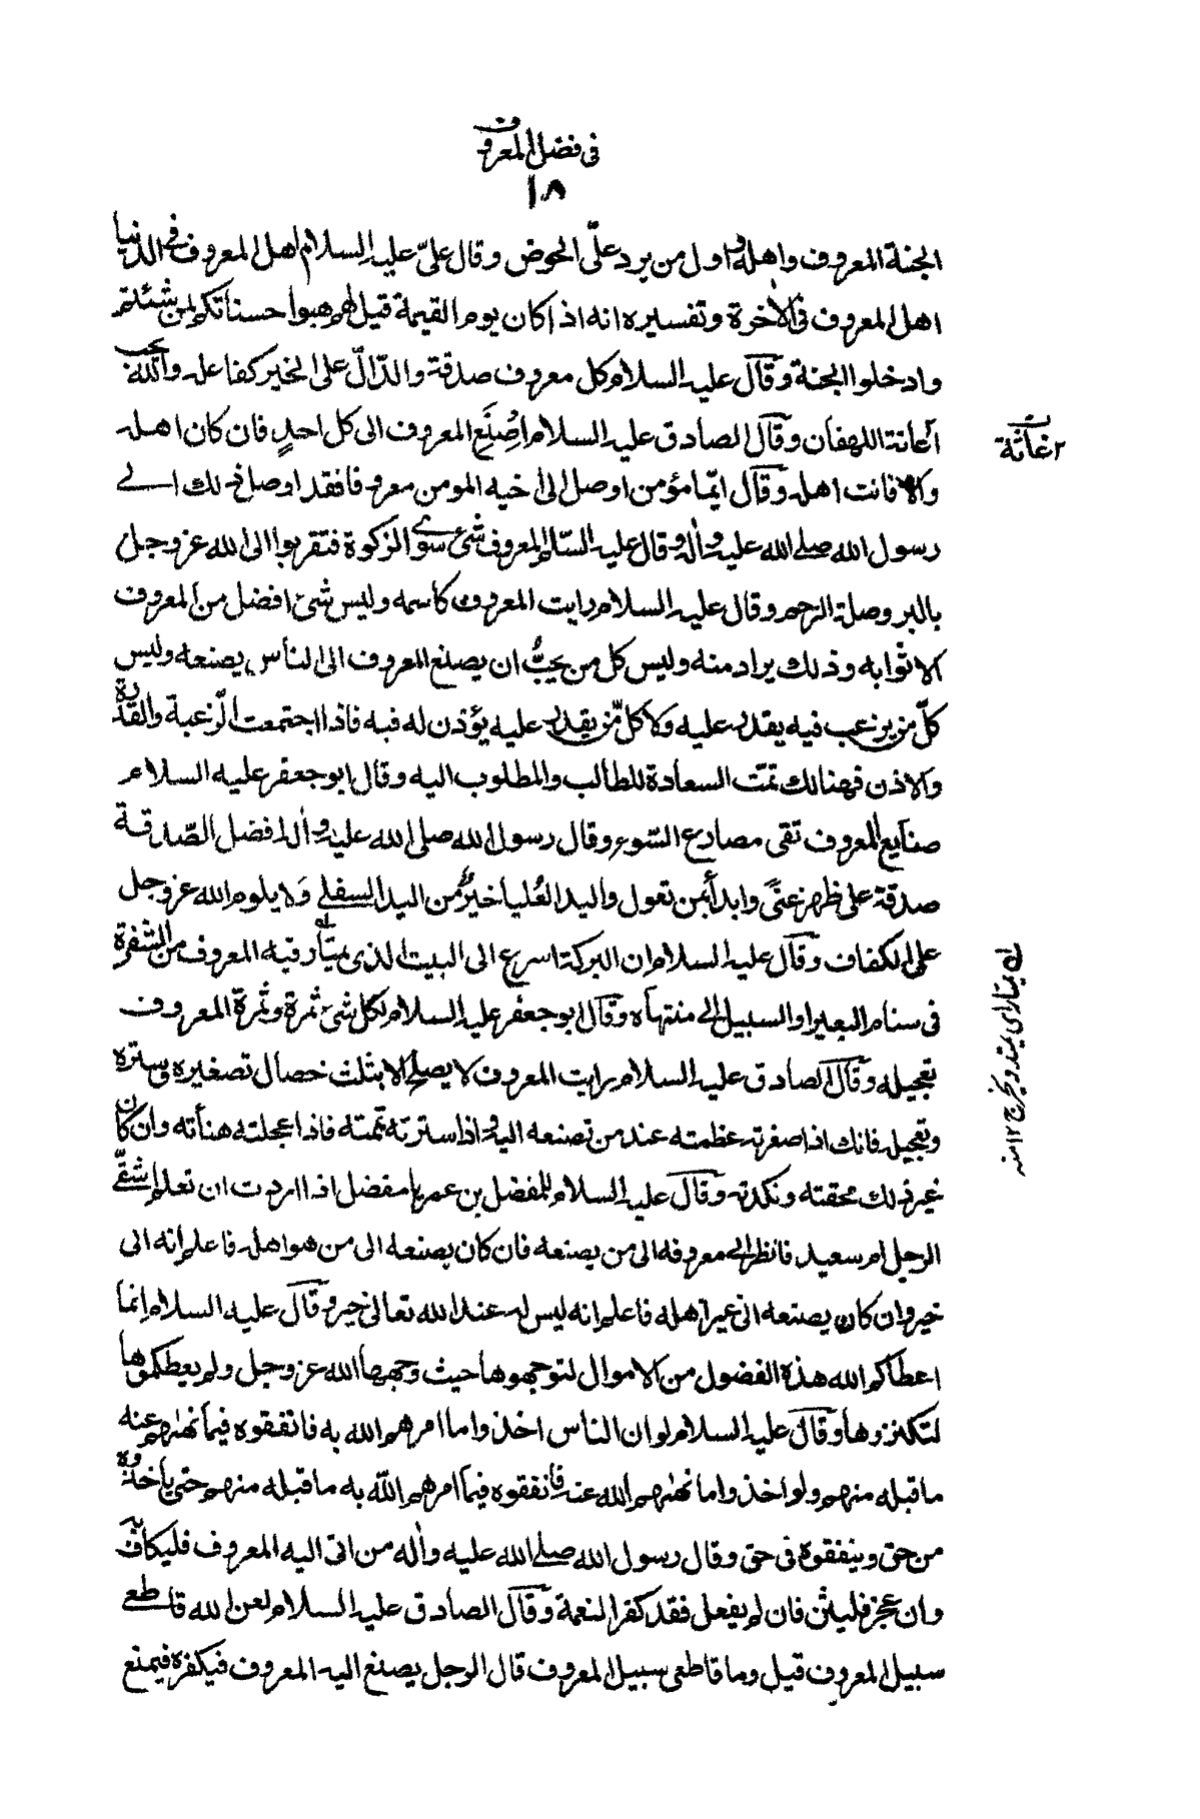 فى فضل المعروف
١٨
الجنة المعروف واهله واول من يرد علّى الحوض وقال علىّ عليه السلام اهل المعروف فى الدنيا
اهل المعروف فى الاخرة وتفسيره انه اذا كان يوم القيمة قيل لهم هبوا حسناتكم لمن شئتم
وادخلوا الجنة وقال عليه السلام كل معروف صدقة والدّالّ على الخير كفاعله والله يحب
اعانة اللهفان وقال الصادق عليه السلام اصْنَع المعروف الى كل احدٍ فان كان اهله
والا فانت اهله وقال ايّما مؤمن اوصل الى اخيه المومن معروفا فقد اوصل ذلك الے
رسول الله صلے الله عليه واٰله وقال عليه السّلم المعروف شئ سوے الزكوة فتقربوا الى الله عز وجل
بالبر وصلة الرحم وقال عليه السلام رايت المعروف كاسمه وليس شئ افضل من المعروف
الا ثوابه وذلك يراد منه وليس كل من يحبُّ ان يصنع المعروف الى الناس يصنعه وليس
كلّ من يرغب فيه يقدر عليه ولا كلّ من يقدر عليه يؤذن له فيه فاذا اجتمعت الرّغبة والقدرة
والاذن فهنالك تمّت السعادة للطالب والمطلوب اليه وقال ابو جعفر عليه السلام
صنايع المعروف تقى مصارع السّوء وقال رسول الله صلى الله عليه واٰله افضل الصّدقة
صدقة على ظهر غنًى وابدأ بمن تعول واليد العُليا خيرٌ من اليد السفلے وَلا يلوم الله عز وجل
على الكفاف وقال عليه السلام ان البركة اسرع الى البيت الذى يمتار فيه المعروف من الشفرة
فى سنام البعير او السبيل الى منتهاه وقال ابو جعفر عليه السلام لكل شئ ثمرة وثمرة المعروف
تعجيله وقال الصادق عليه السلام رايت المعروف لا يصلح الا بثلث خصال تصغيره وستره
وتعجيله فانك اذا صغرته عظمته عند من تصنعه اليه واذا سترته تممته فاذا عجلته هنأته وان كان
غير ذلك محقته ونكدته وقال عليه السلام للمفضل بن عمر يا مفضل اذا اردت ان تعلم اشقّے
الرجل ام سعيد فانظر الے معروفه الى من يصنعه فان كان يصنعه الى من هو اهله فاعلم انه الى
خير وان كان يصنعه الى غير اهله فاعلم انه ليس له عند الله تعالى خير وقال عليه السلام انما
اعطاكم الله هذه الفضول من الاموال لتوجهوها حيث وجهها الله عز وجل ولم يعطكموها
لتكنزوها وقال عليه السلام لو ان الناس اخذوا ما امرهم الله به فانفقوه فيما نهٰهم عنه
ما قبله منهم ولو اخذوا ما نهٰهم الله عنه فانفقوه فيما امرهم اللّه به ما قبله منهم حتى ياخذوه
من حق وينفقوه فى حق وقال رسول الله صلے الله عليه واٰله من اتى اليه المعروف فليكاف به
وان عجز فليثن فان لم يفعل فقد كفر النعمة وقال الصادق عليه السلام لعن الله قاطعے
سبيل المعروف قيل وما قاطعى سبيل المعروف قال الرجل يصنع اليه المعروف فيكفره فيمنع
٢ اغاثة
له يمتار اى يمتد ويخرج ١٢ منه